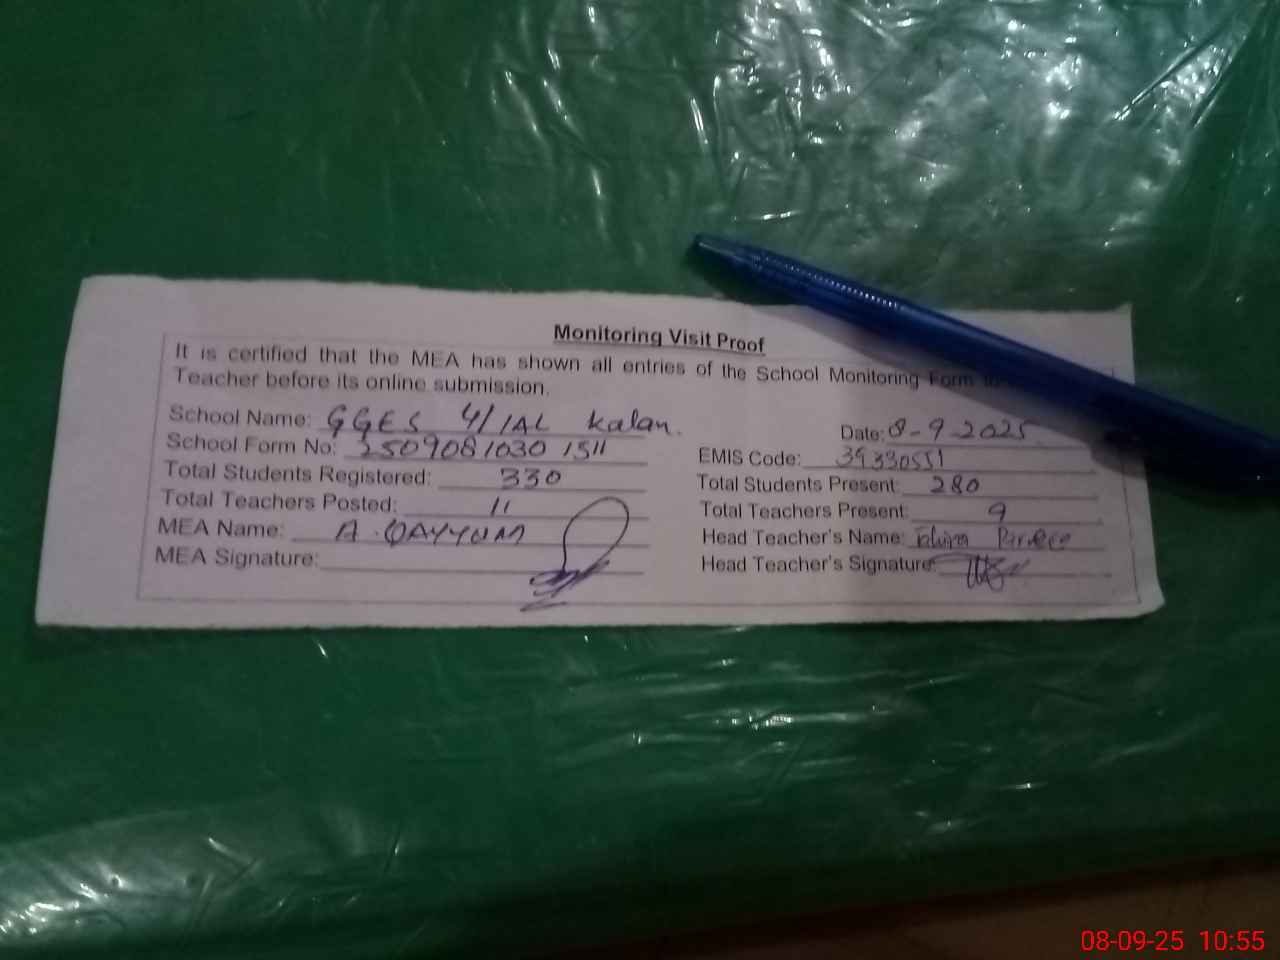 Monitoring Visit Proof
It is certified that the MEA has shown all entries of the School Monitoring Form to
Teacher before its online submission.
School Name: GGES 4/1AL Kalan.
Date: 8-9-2025
School Form No: 25090810301511
EMIS Code: 39330551
Total Students Registered: 330
Total Students Present: 280
Total Teachers Posted: 11
Total Teachers Present: 9
MEA Name: A. QAYYUM
Head Teacher's Name:
MEA Signature:
Head Teacher's Signature:
08-09-25 10:55